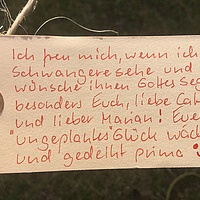 Ich freu mich, wenn ich
Schwangere sehe und
wünsche ihnen Gottes Seg
besonders Euch, liebe Cat
und lieber Marian! Euer
"ungeplantes" Glück wäch
und gedeiht prima